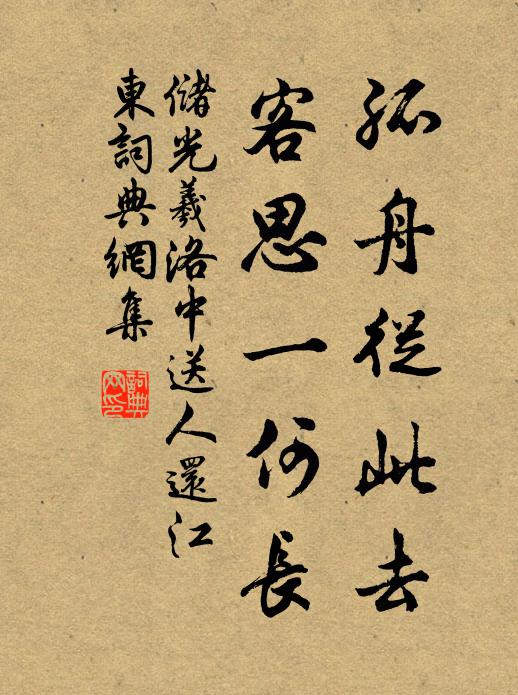 孤舟從此去
客思一何長
儲光羲洛中送人還江
東詞典網集
詞典
网印